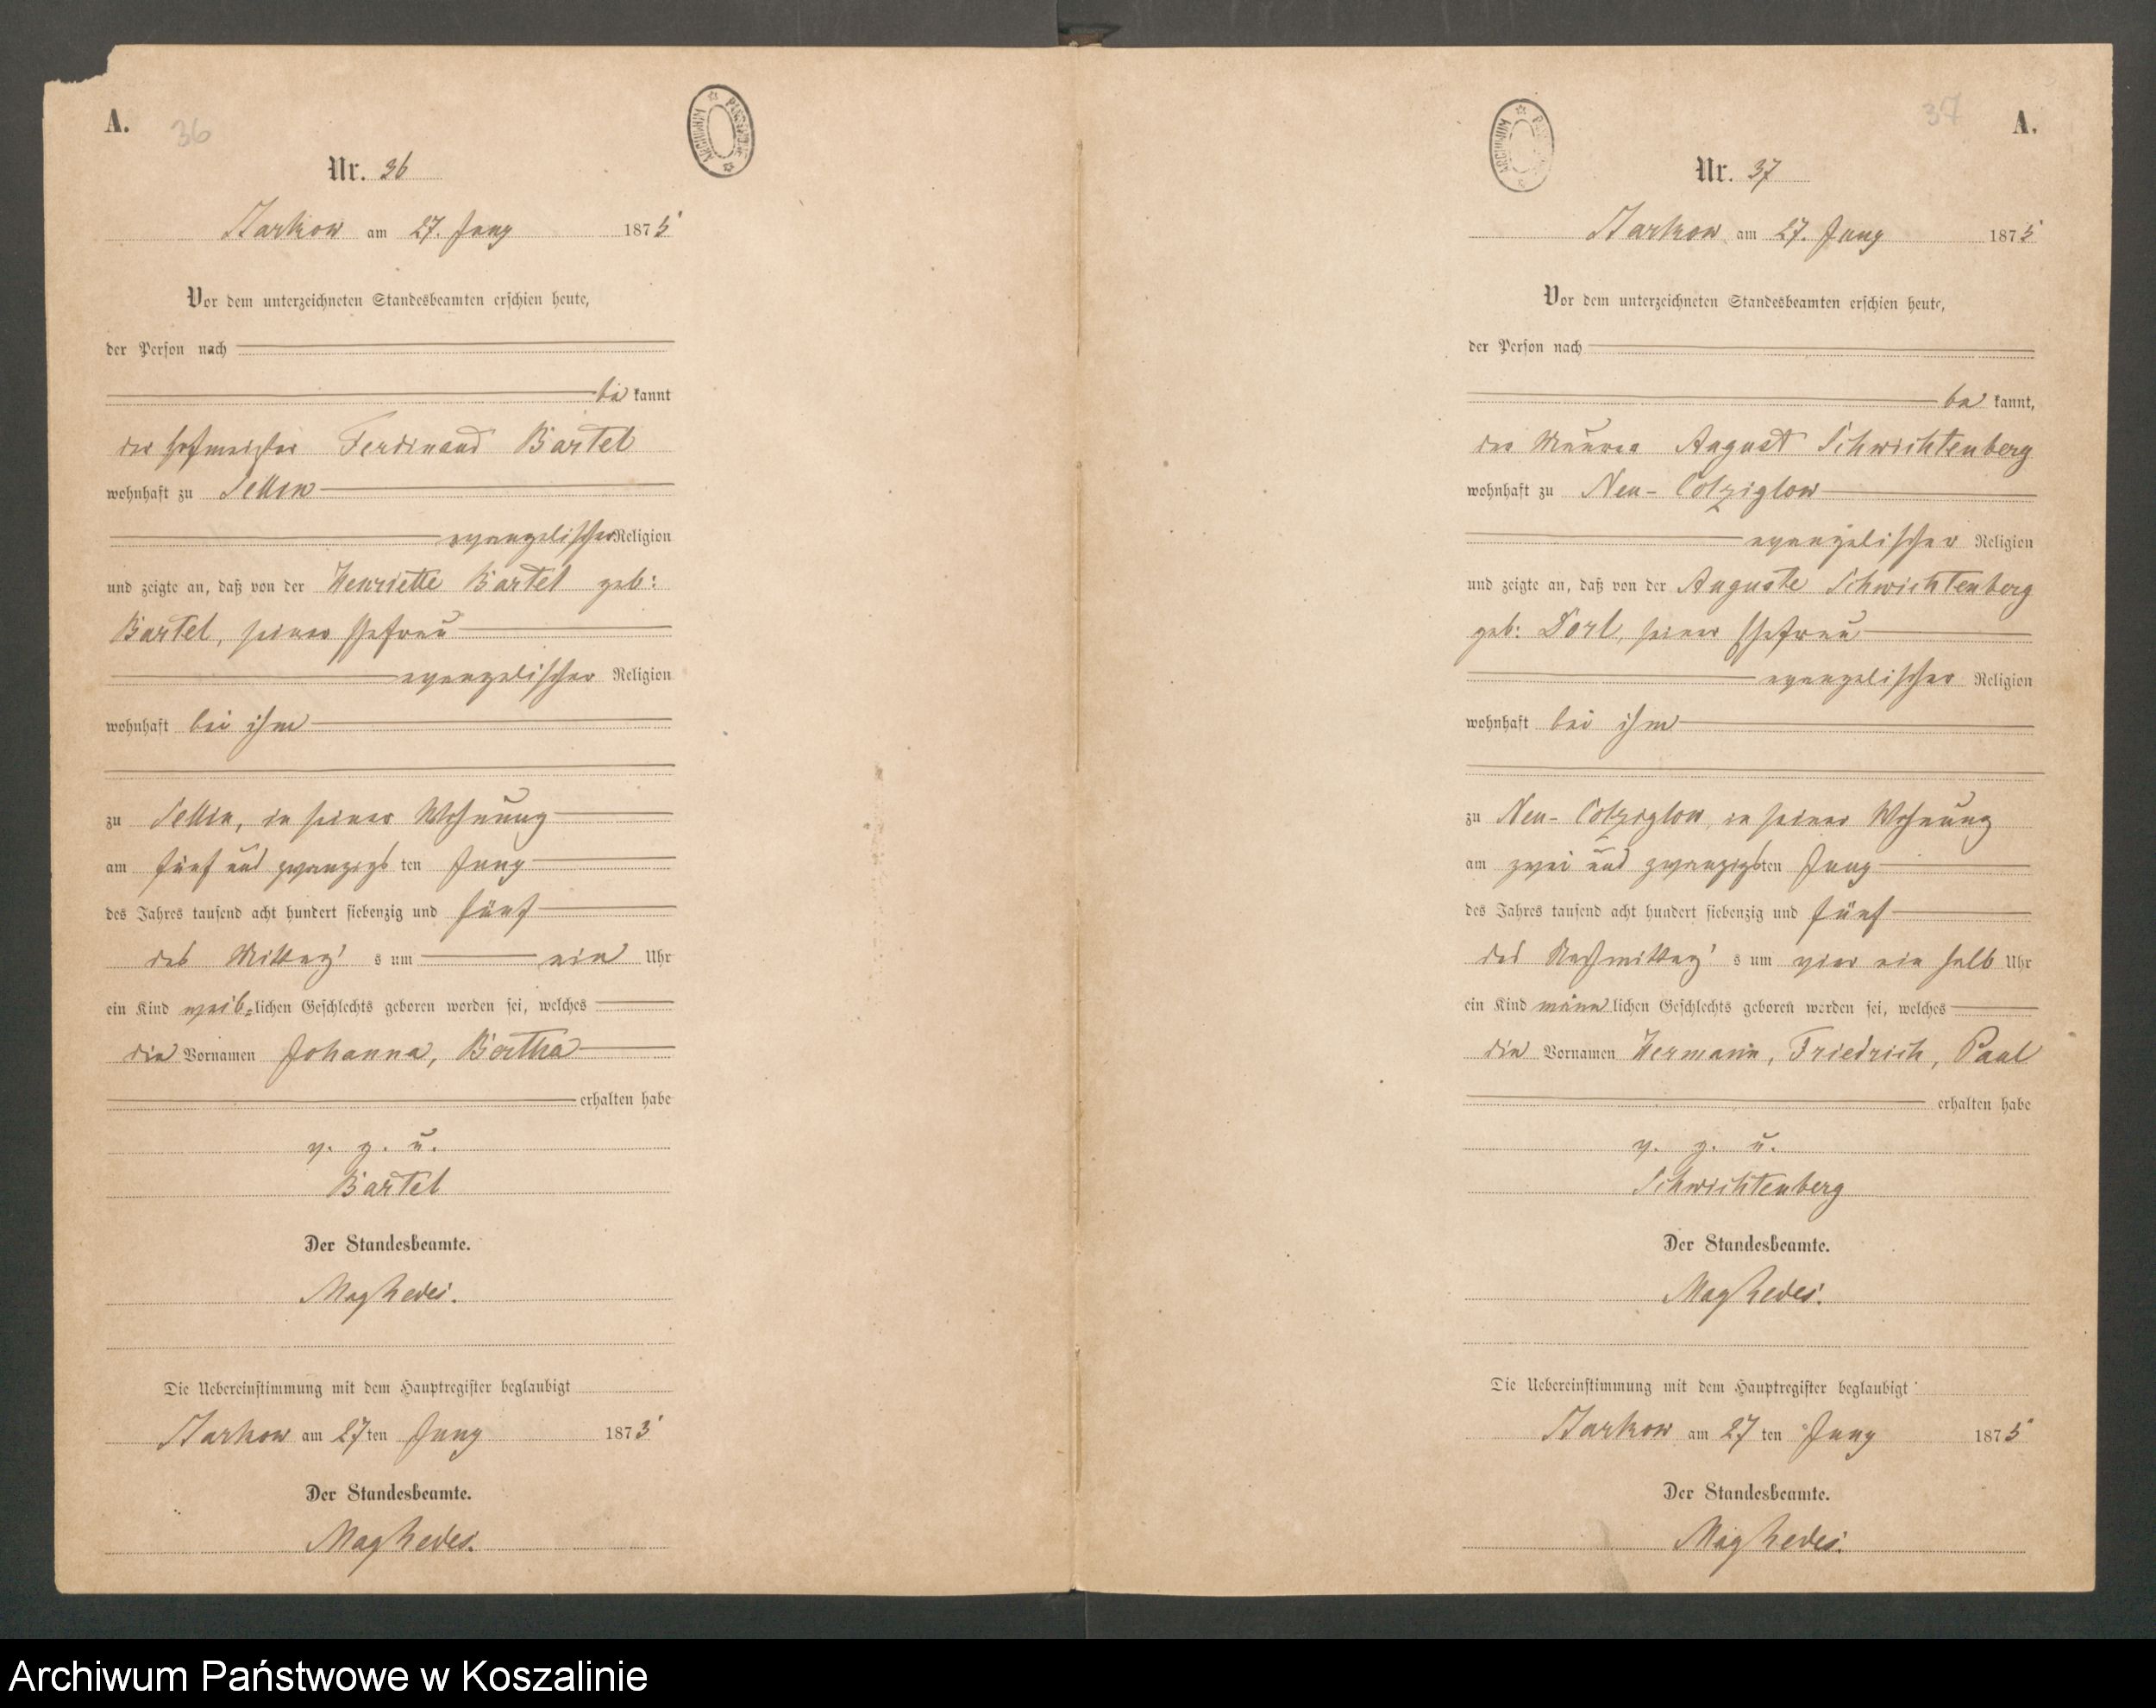 A.
36
ARCHIWUM PAŃSTWOWE
Nr. 36
Starkow am 27. Juny 1875
Vor dem unterzeichneten Standesbeamten erschien heute,
der Person nach
be kannt
der Hofmeister Ferdinand Bartel
wohnhaft zu Sellin
evangelischer Religion
und zeigte an, daß von der Henriette Bartel geb:
Bartel, seiner Ehefrau
evangelischer Religion
wohnhaft bei ihm
zu Sellin, in seiner Wohnung
am fünf und zwanzigs ten Juny
des Jahres tausend acht hundert siebenzig und fünf
des Mittag's um ein Uhr
ein Kind weib=lichen Geschlechts geboren worden sei, welches
die Vornamen Johanna, Bertha
erhalten habe
v. g. u.
Bartel
Der Standesbeamte.
Die Uebereinstimmung mit dem Hauptregister beglaubigt
Starkow am 27ten Juny 1875
Der Standesbeamte.
37
A.
ARCHIWUM
Nr. 37
Starkow am 27. Juny 1875
Vor dem unterzeichneten Standesbeamten erschien heute,
der Person nach
be kannt,
der Maurer August Schwichtenberg
wohnhaft zu Neu- Colziglow
evangelischer Religion
und zeigte an, daß von der Auguste Schwichtenberg
geb: Dorl, seiner Ehefrau
evangelischer Religion
wohnhaft bei ihm
zu Neu- Colziglow, in seiner Wohnung
am zwei und zwanzigsten Juny
des Jahres tausend acht hundert siebenzig und fünf
des Nachmittag's um vier ein halb Uhr
ein Kind männlichen Geschlechts geboren worden sei, welches
die Vornamen Hermann, Friedrich, Paul
erhalten habe
v. g. u.
Schwichtenberg
Der Standesbeamte.
Die Uebereinstimmung mit dem Hauptregister beglaubigt
Starkow am 27 ten Juny 1875
Der Standesbeamte.
Archiwum Państwowe w Koszalinie